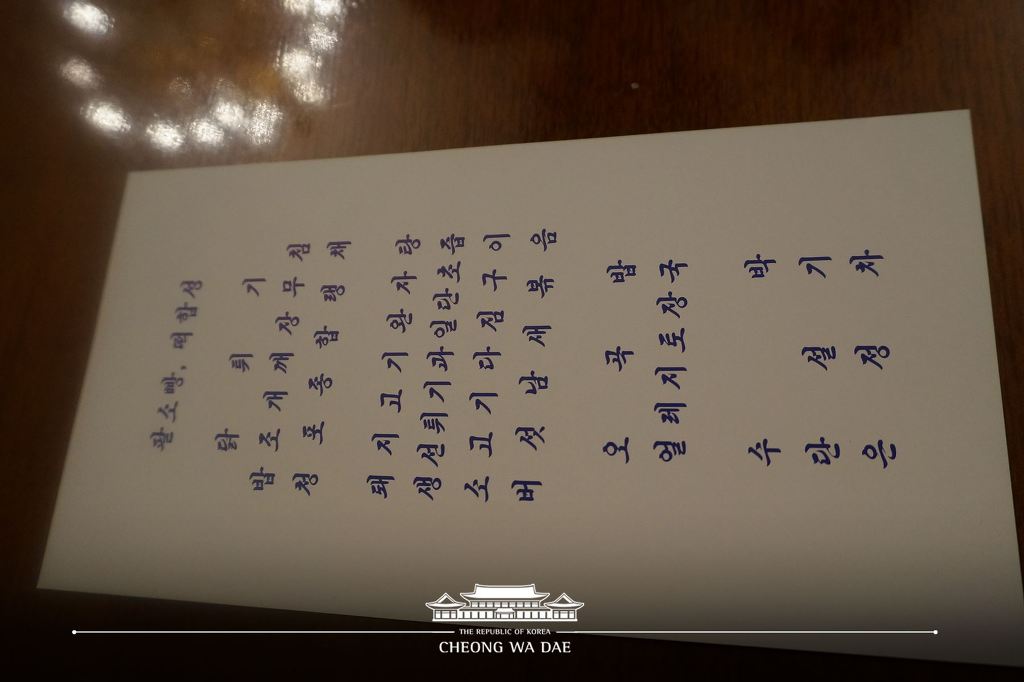 팥소빵, 떡합성
닭튀기
밥조개깨장무침
청포종합랭채
돼지고기완자탕
생선튀기과일단초즙
소고기다짐구이
버섯남새볶음
오곡밥
얼레지토장국
수박
단설기
은정차
THE REPUBLIC OF KOREA
CHEONG WA DAE